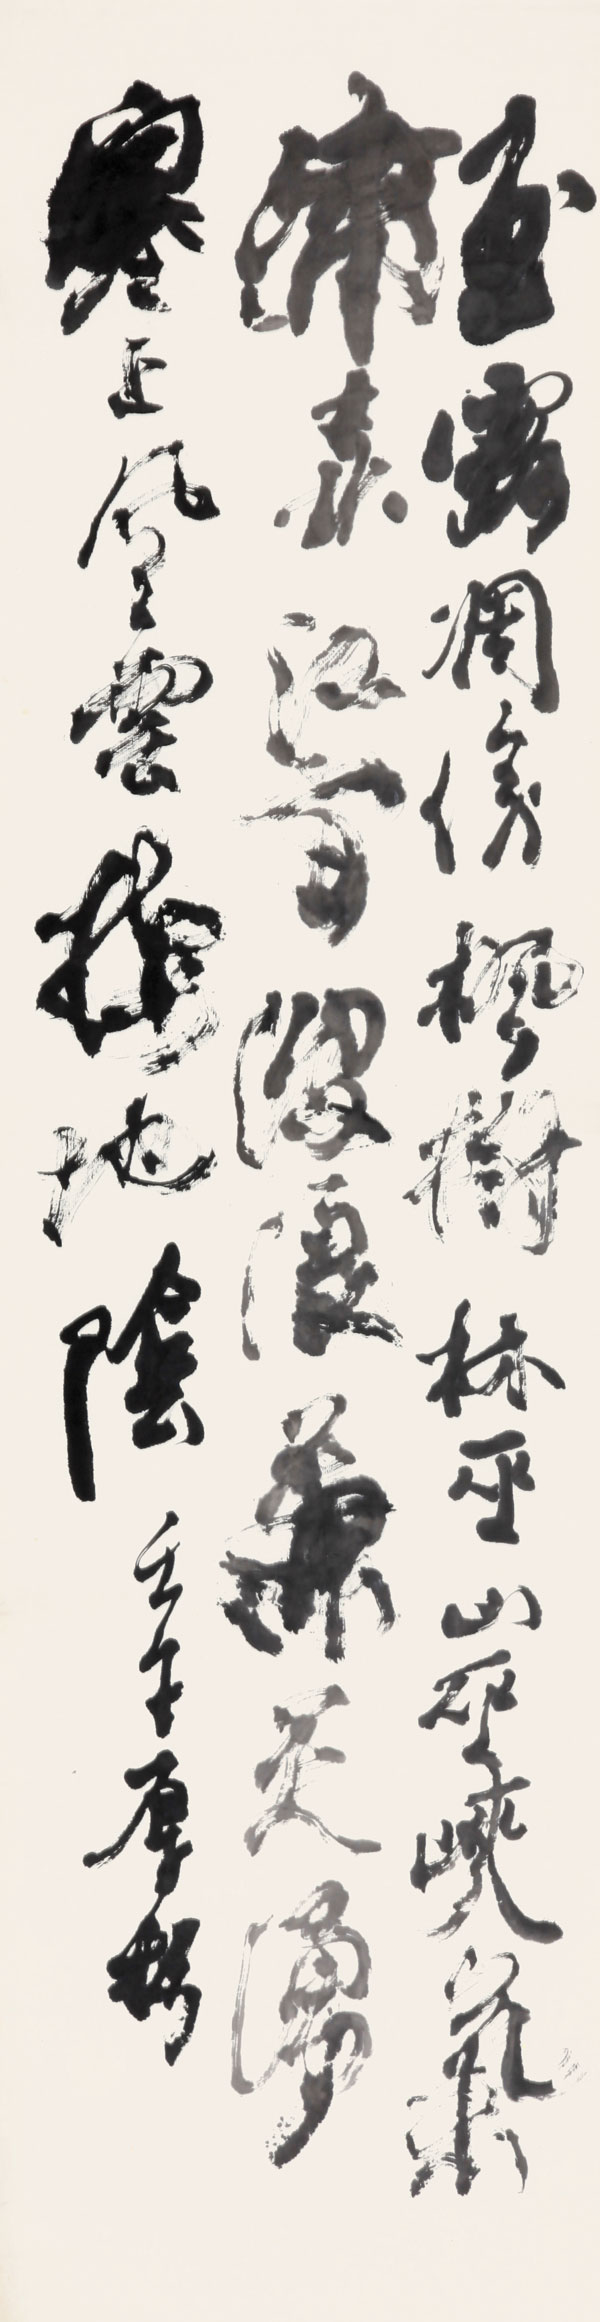 玉露凋傷楓樹林巫山巫峽氣
蕭森江間波浪兼天湧
塞上風雲接地陰 壬午厚